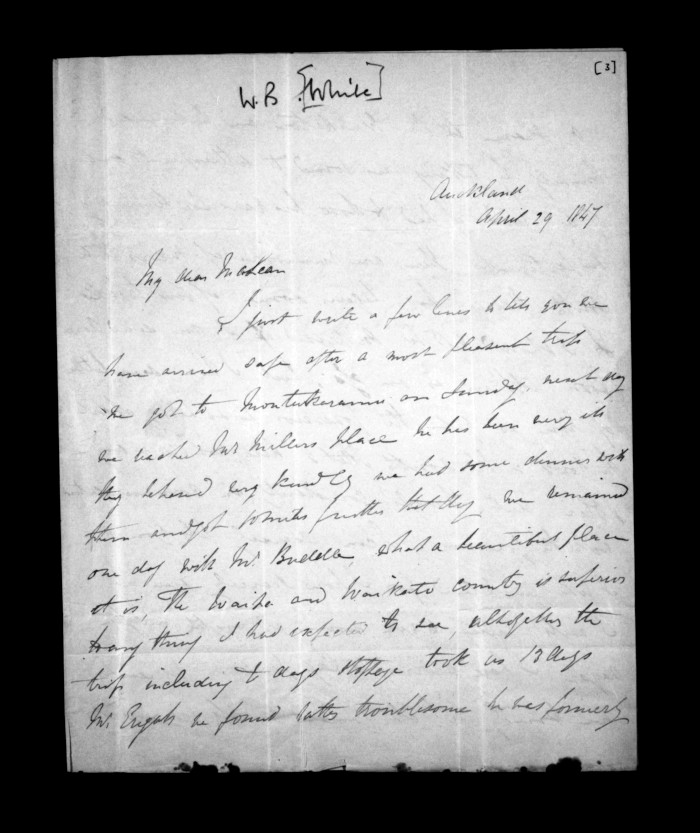 [3]
W.B. [White]
Auckland
April 29 1847
My dear McLean
I just write a few lines to let you we
have arrived safe after a most pleasant trip
we got to on Sunday, next day
we reached Mr Millers place he has been very ill
they behaved very kindly we had some dinner with
them and got miles further that day we remained
one day with Mr Buddle, what a beautiful place
it is, The Waipa and Waikato country is superior
to any thing I had expected to see, altogether the
trip including days stoppage took us 13 days
Mr we found rather troublesome he was formerly